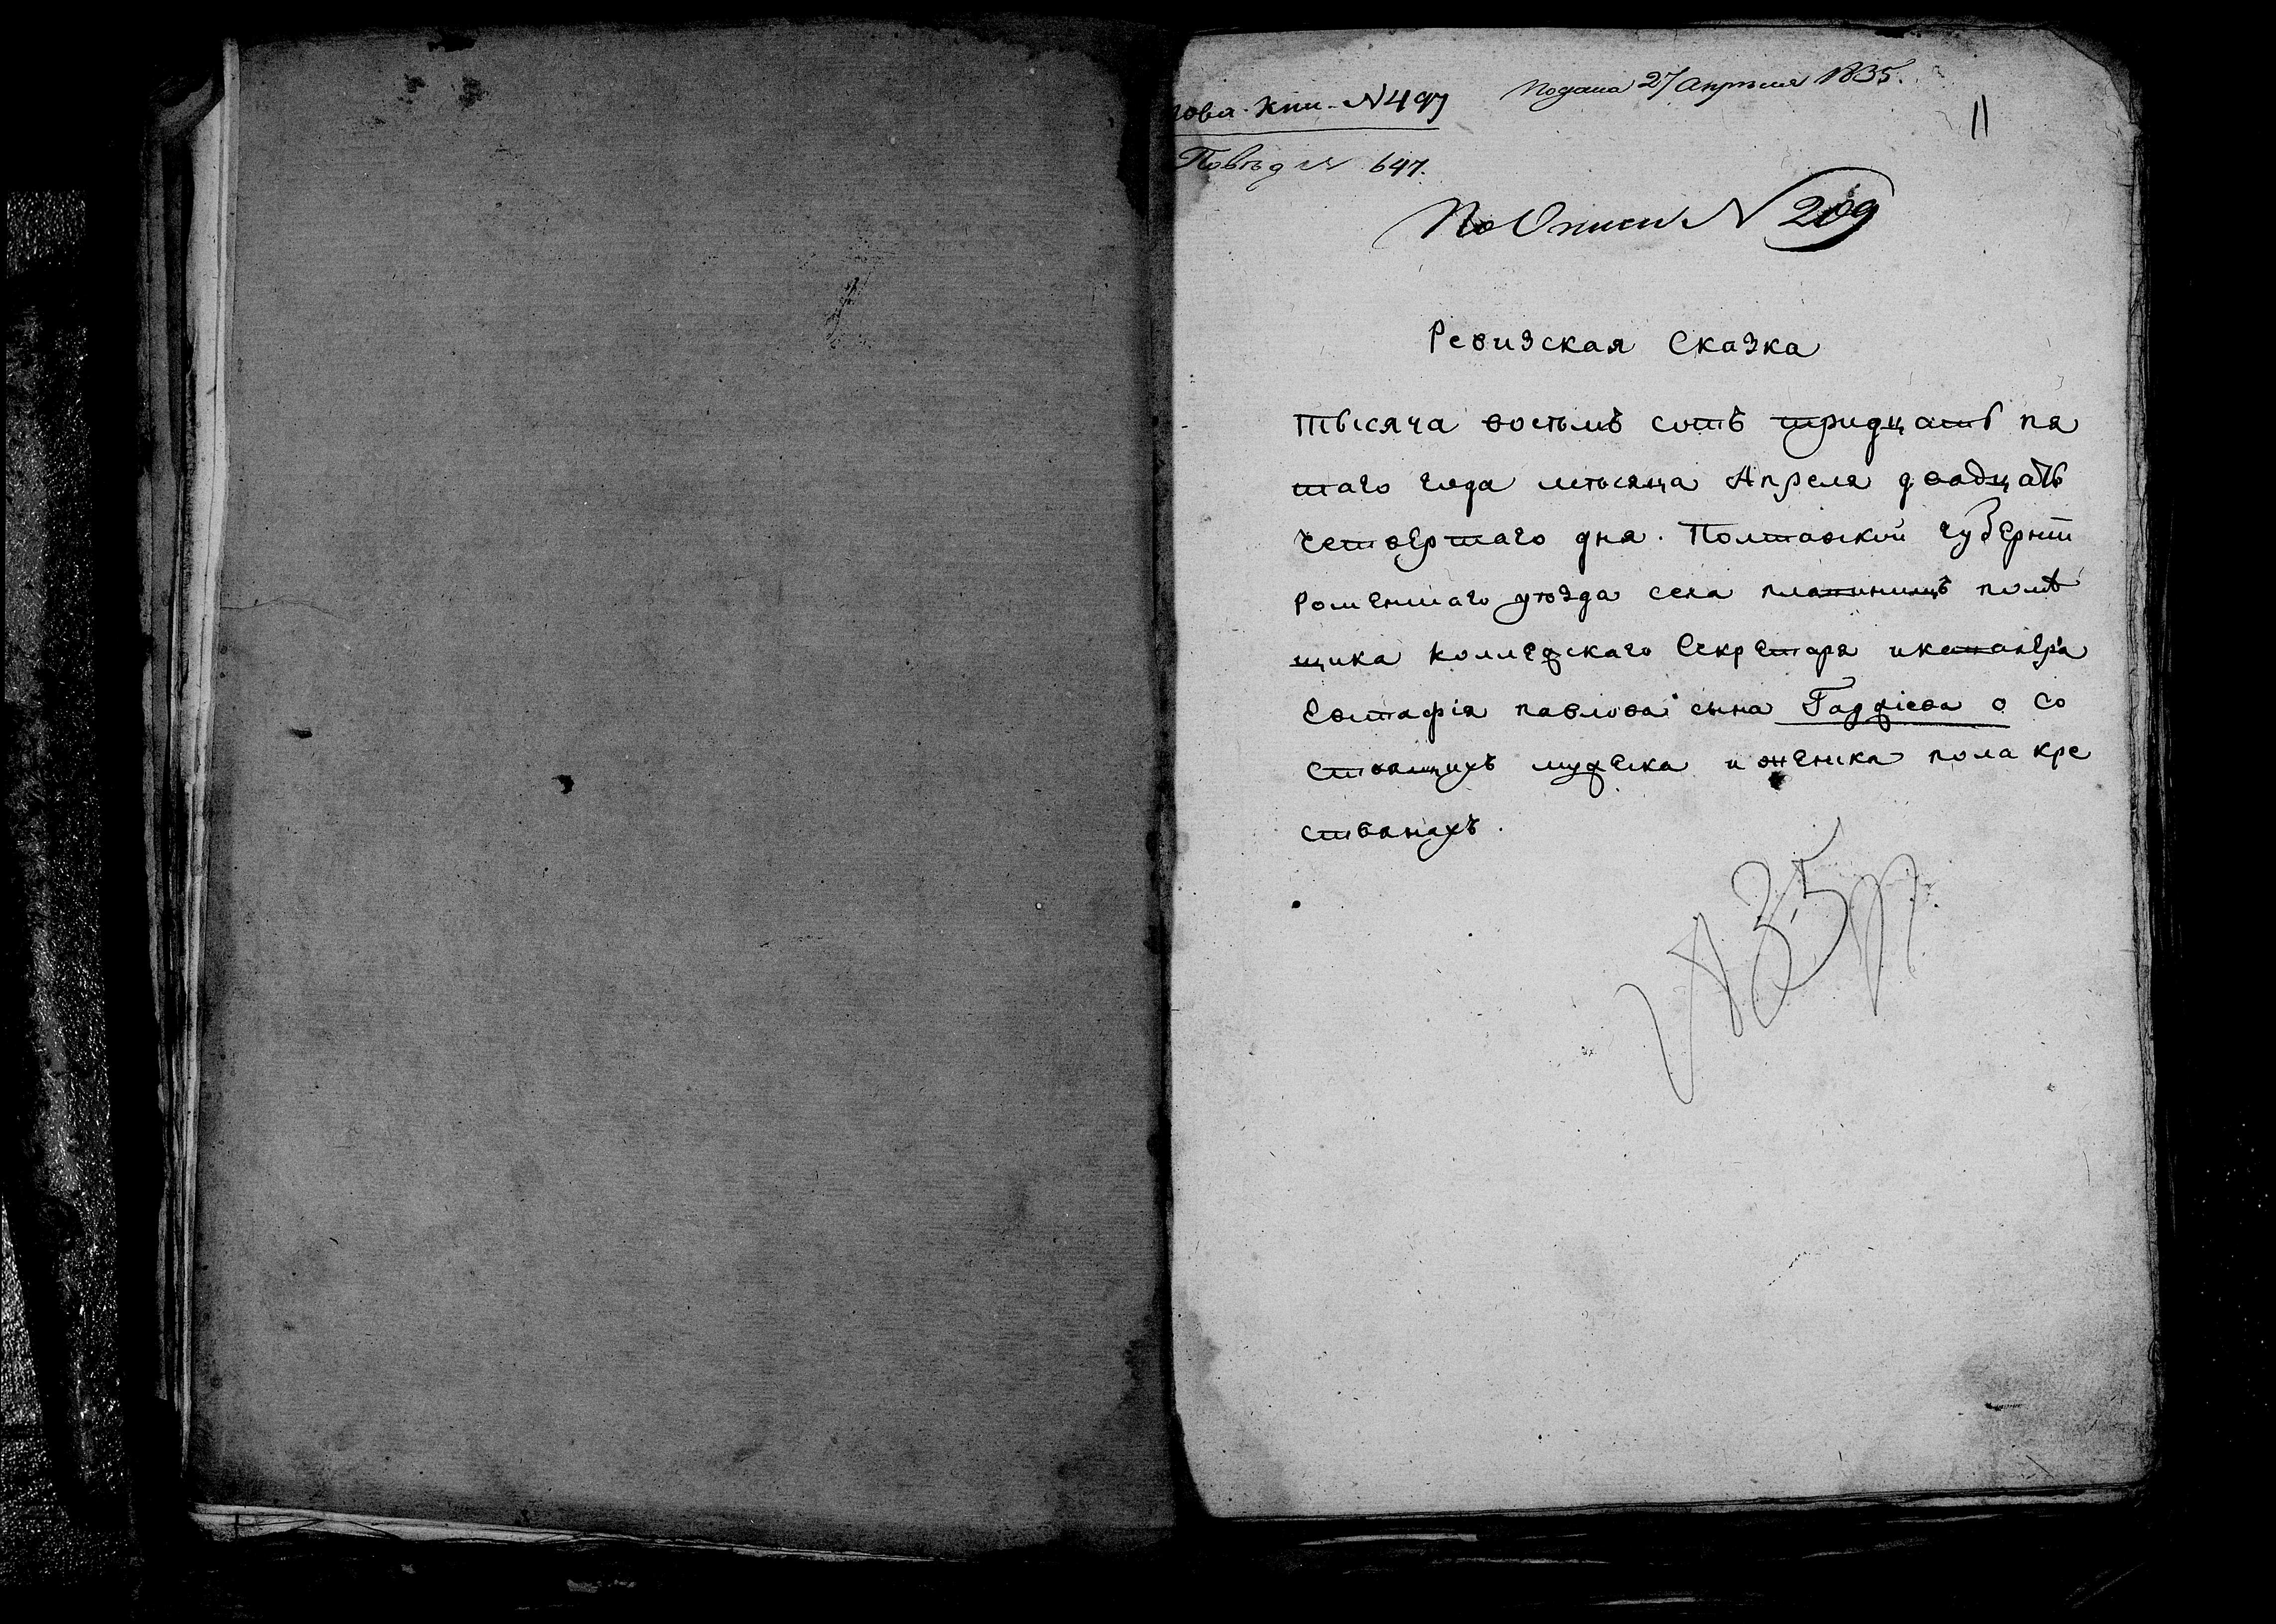 Подана 27 Апрѣля 1835.
Кни. N 497
11
Повѣд N 647.
По Описи N 209
Ревизская Сказка
тысяча восѣмъ сотъ тридцать пя
таго года мѣсяца Апреля двадцать
четвертаго дня. Полтавской губерніи
Роменскаго уѣзда села помѣ
щика коллежскаго Секретаря и кавалера
Евстафія павлова сына Гаджіева о со
стоящихъ мужеска и женска пола кре
стьянахъ.
1835